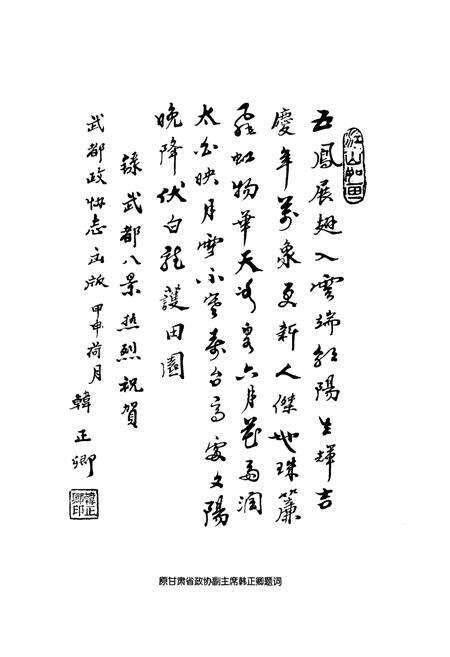 江山如畫
五鳳展翅入雲端朝陽生輝吉
慶年萬象更新人傑地珠簾
虹物華天六月潤
太白映月雪不寒壽台高處夕陽
晚降伏白龍護田園
錄武都八景熱烈祝賀
武都政协志出版 甲申荷月 韓正卿
韓正卿印
原甘肃省政协副主席韩正卿题词